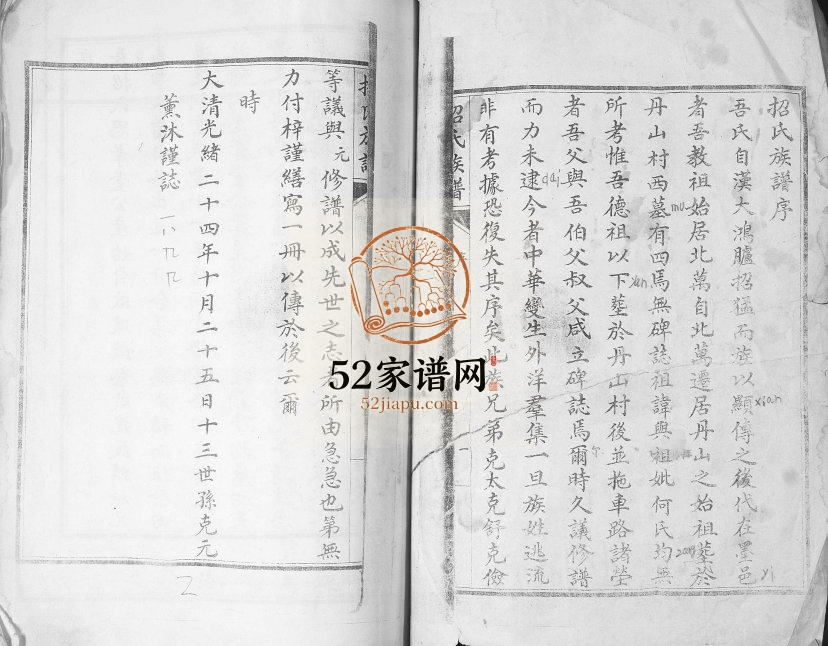 招氏族譜序
吾氏自漢大鴻臚招猛而族以顯傳之後代在墨邑
xian
yi
者吾教祖始居北萬自北萬遷居丹山之始祖塋於
丹山村西墓有四焉無碑誌祖諱與祖妣何氏均無
mu
所考惟吾德祖以下塋於丹山村後並拖車路諸塋
者吾父與吾伯父叔父咸立碑誌焉爾時久議修譜
而力未逮今者中華變生外洋羣集一旦族姓逃流
dai
非有考據恐復失其序矣此族兄弟克太克舒克儉
招氏族譜
等議與元修譜以成先世之志者所由急急也第無
力付梓謹繕寫一冊以傳於後云爾
時
大清光緒二十四年十月二十五日十三世孫克元
薰沐謹誌
一八九九
2
52家谱网
52jiapu.com